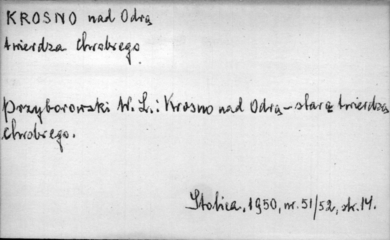 KROSNO nad Odrą
twierdza Chrobrego
Przyborowski W. L.: Krosno nad Odrą – starą twierdzą
Chrobrego.
Stolica, 1950, nr. 51/52, str. 14.